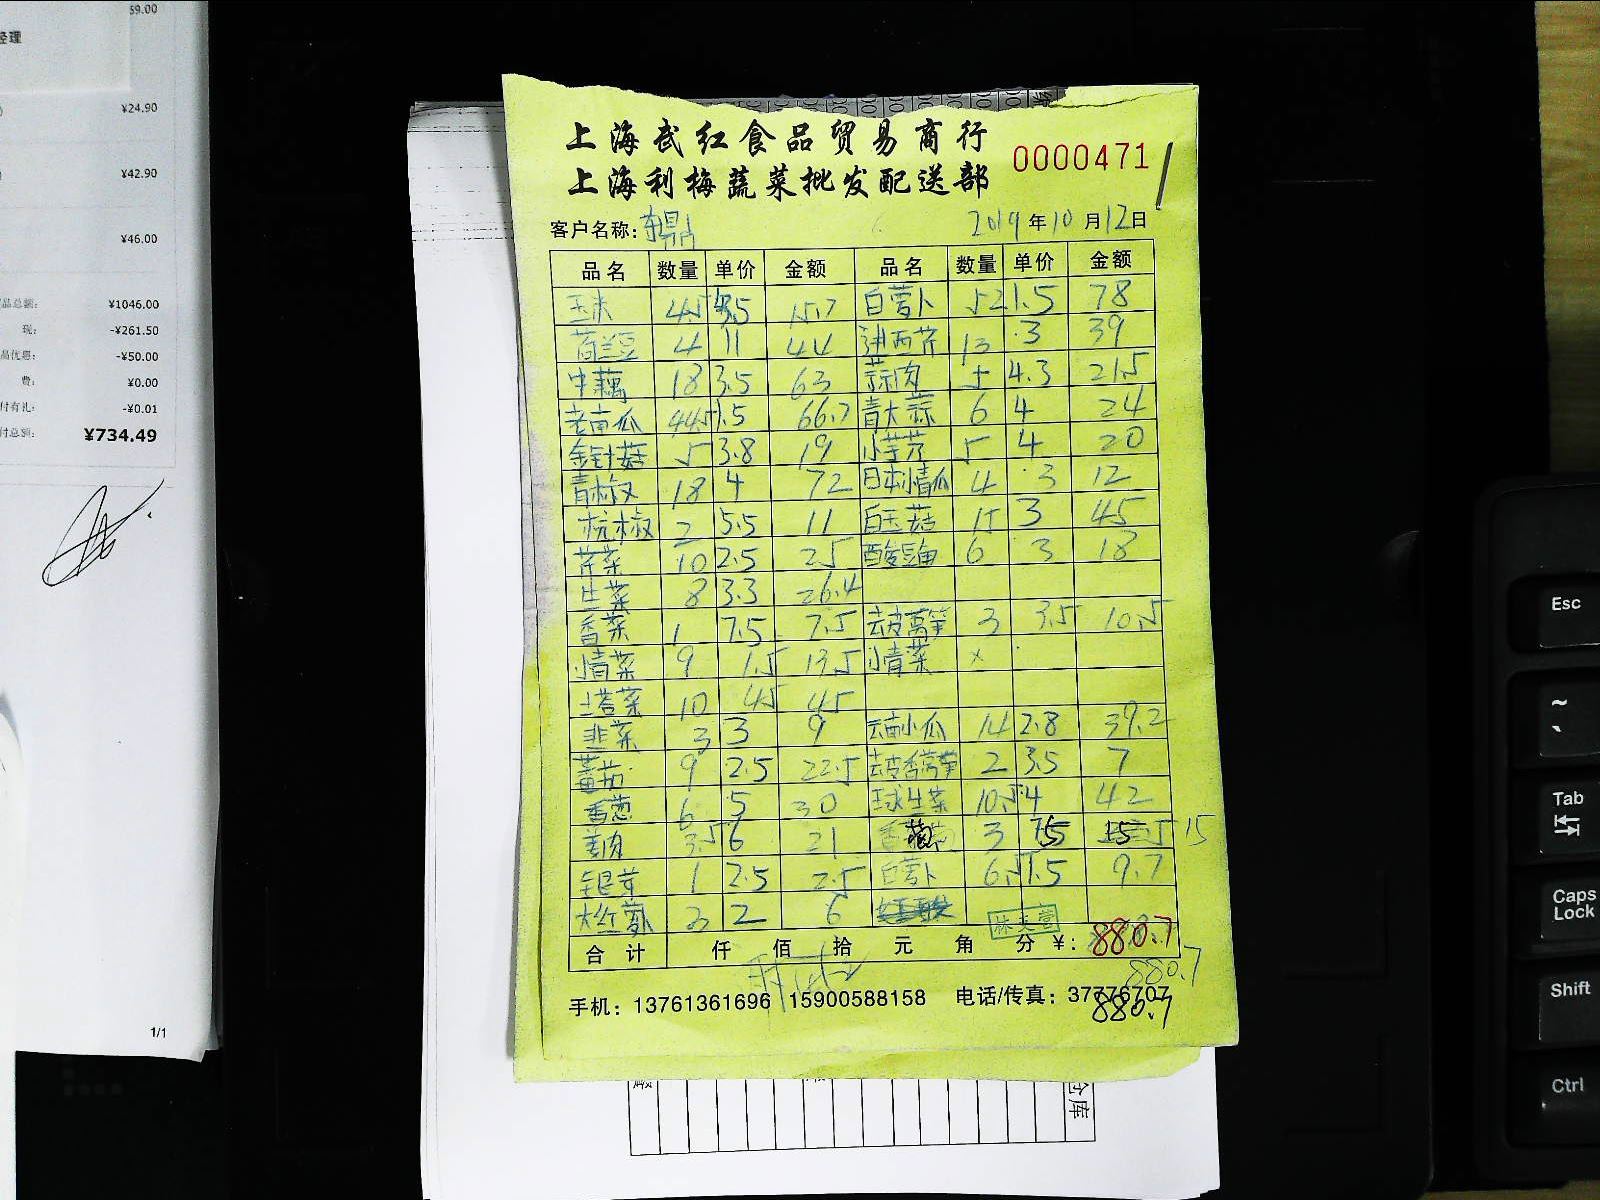 59.00
经理
¥24.90
¥42.90
¥46.00
品总额: ¥1046.00
现: -¥261.50
品优惠: -¥50.00
费: ¥0.00
付有礼: -¥0.01
付总额: ¥734.49
1/1
上海武红食品贸易商行
上海利梅蔬菜批发配送部
0000471
客户名称: 2019年10月12日
品名 数量 单价 金额 品名 数量 单价 金额
玉米 4.5 3.5 15.7 白萝卜 52 1.5 78
荷兰豆 4 11 44 进西芹 13 3 39
中藕 18 3.5 63 蒜肉 5 4.3 21.5
老南瓜 44.5 1.5 66.7 青大蒜 6 4 24
金针菇 5 3.8 19 小芋艿 5 4 20
青椒 18 4 72 日本小青瓜 4 3 12
杭椒 2 5.5 11 白玉菇 15 3 45
芹菜 10 2.5 25 酸豆角 6 3 18
生菜 8 3.3 26.4
香菜 1 7.5 7.5 去皮莴笋 3 3.5 10.5
小青菜 9 1.5 13.5 小青菜 ×
土塔菜 10 4.5 45
韭菜 3 3 9 云南小瓜 14 2.8 39.2
蕃茄 9 2.5 22.5 去皮香莴笋 2 3.5 7
香葱 6 5 30 球生菜 10.5 4 42
姜肉 3.5 6 21 3 15 15
银芽 1 2.5 2.5 白萝卜 6.5 1.5 9.7
大红萝卜 3 2 6
合计 仟 佰 拾 元 角 分 ¥: 880.7
880.7
手机: 13761361696 15900588158 电话/传真: 37776707
880.7
仓库
Esc
~
`
Tab
Caps Lock
Shift
Ctrl